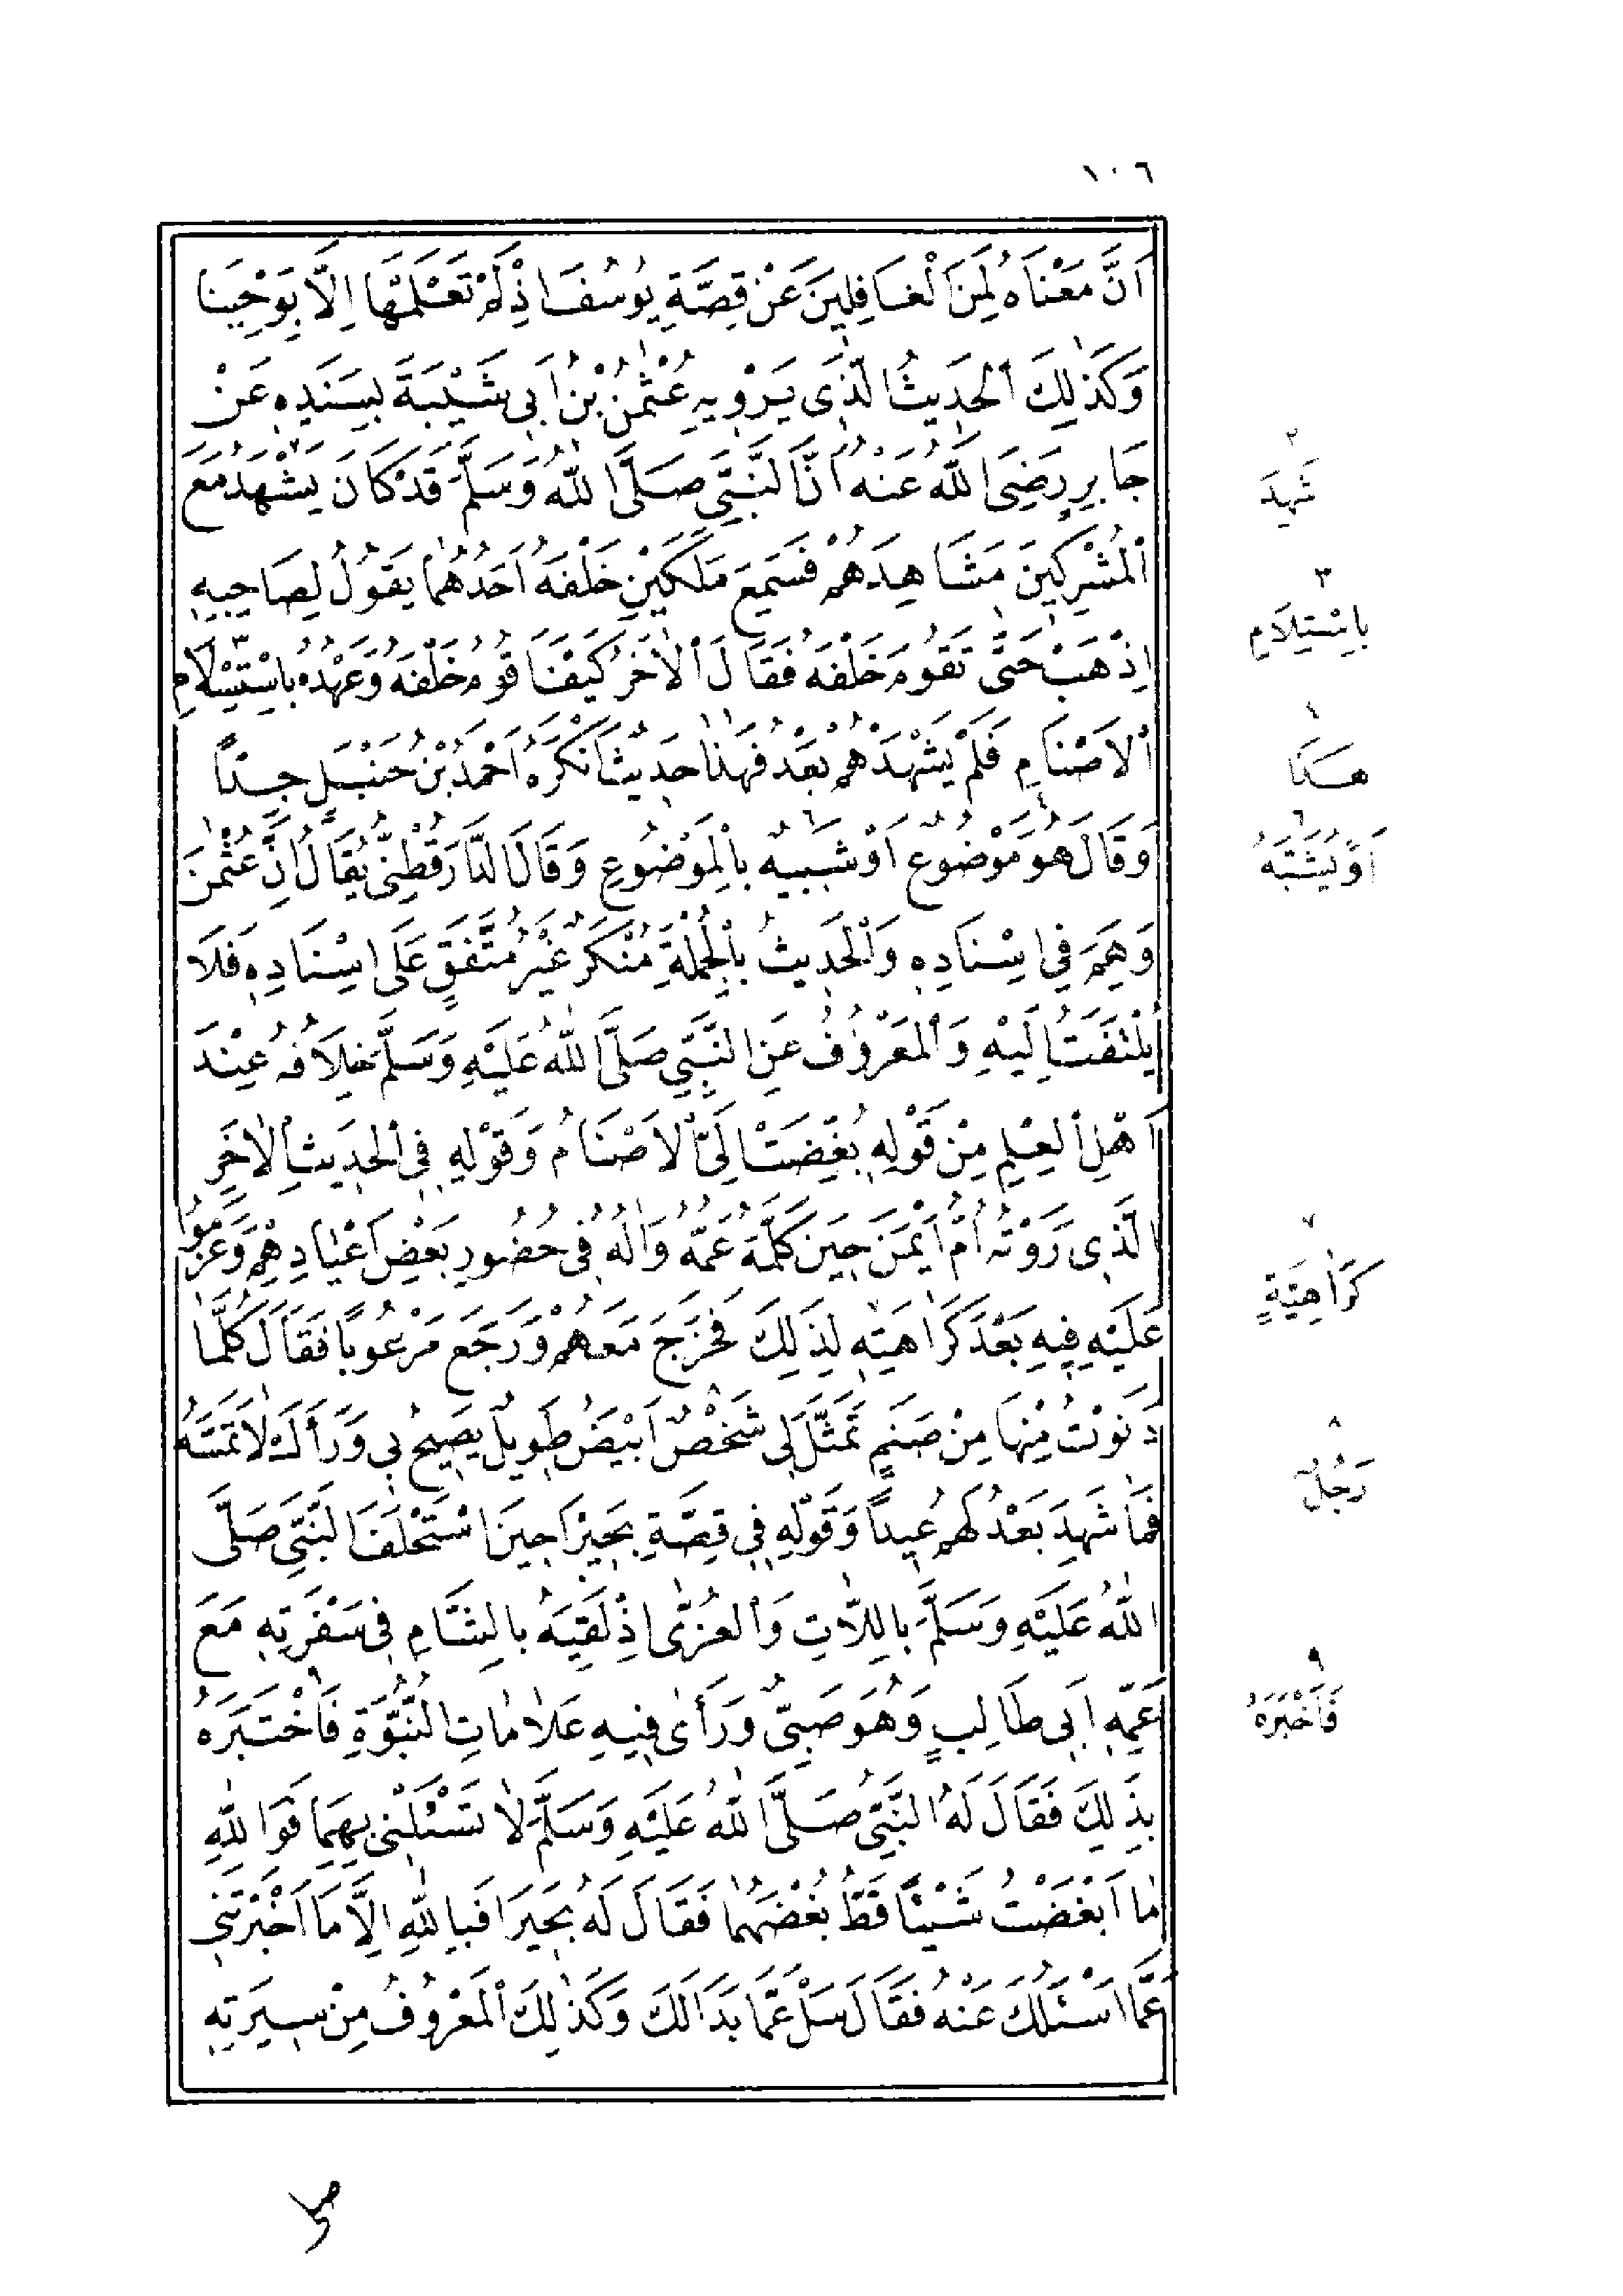 ١٠٦
اَنَّ مَعْنَاهُ لَمِنَ الْغَافِلِينَ عَنْ قِصَّةِ يُوسُفَ اِذْ لَمْ تَعْلَمْهَا اِلَّا بِوَحْيِنَا
وَكَذٰلِكَ الْحَدِيثُ الَّذِى يَرْوِيهِ عُثْمٰنُ بْنُ اَبِى شَيْبَةَ بِسَنَدِهِ عَنْ
جَابِرٍ رَضِىَ اللّٰهُ عَنْهُ اَنَّ النَّبِىَّ صَلَّى اللّٰهُ وَسَلَّمَ قَدْ كَانَ يَشْهَدُ مَعَ
الْمُشْرِكِينَ مَشَاهِدَهُمْ فَسَمِعَ مَلَكَيْنِ خَلْفَهُ اَحَدُهُمَا يَقُولُ لِصَاحِبِهِ
اِذْهَبْ حَتّٰى تَقُومَ خَلْفَهُ فَقَالَ الْاٰخَرُ كَيْفَ اَقُومُ خَلْفَهُ وَعَهْدُهُ بِاسْتِسْلَامِ
الْاَصْنَامِ فَلَمْ يَشْهَدْهُمْ بَعْدُ فَهٰذَا حَدِيثٌ اَنْكَرَهُ اَحْمَدُ بْنُ حَنْبَلٍ جِدًّا
وَقَالَ هُوَ مَوْضُوعٌ اَوْ شَبِيهٌ بِالْمَوْضُوعِ وَقَالَ الدَّارَقُطْنِىُّ يُقَالُ اِنَّ عُثْمٰنَ
وَهِمَ فِى اِسْنَادِهِ وَالْحَدِيثُ بِالْجُمْلَةِ مُنْكَرٌ غَيْرُ مُتَّفَقٍ عَلَى اِسْنَادِهِ فَلَا
يُلْتَفَتُ اِلَيْهِ وَالْمَعْرُوفُ عَنِ النَّبِىِّ صَلَّى اللّٰهُ عَلَيْهِ وَسَلَّمَ خِلَافُهُ عِنْدَ
اَهْلِ الْعِلْمِ مِنْ قَوْلِهِ بُغِّضَتْ اِلَىَّ الْاَصْنَامُ وَقَوْلِهِ فِى الْحَدِيثِ الْاٰخَرِ
الَّذِى رَوَتْهُ اُمُّ اَيْمَنَ حِينَ كَلَّمَهُ عَمُّهُ وَاٰلُهُ فِى حُضُورِ بَعْضِ اَعْيَادِهِمْ وَعَزَمُوا
عَلَيْهِ فِيهِ بَعْدَ كَرَاهِيَتِهِ لِذٰلِكَ فَخَرَجَ مَعَهُمْ وَرَجَعَ مَرْعُوبًا فَقَالَ كُلَّمَا
دَنَوْتُ مِنْهَا مِنْ صَنَمٍ تَمَثَّلَ لِى شَخْصٌ اَبْيَضُ طَوِيلٌ يَصِيحُ بِى وَرَاَكَ لَا تَمَسَّهُ
فَمَا شَهِدَ بَعْدُ لَهُمْ عِيدًا وَقَوْلِهِ فِى قِصَّةِ بَحِيرَا حِينَ اسْتَحْلَفَ النَّبِىَّ صَلَّى
اللّٰهُ عَلَيْهِ وَسَلَّمَ بِاللَّاتِ وَالْعُزّٰى اِذْ لَقِيَهُ بِالشَّامِ فِى سَفْرَتِهِ مَعَ
عَمِّهِ اَبِى طَالِبٍ وَهُوَ صَبِىٌّ وَرَأٰى فِيهِ عَلَامَاتِ النُّبُوَّةِ فَاخْتَبَرَهُ
بِذٰلِكَ فَقَالَ لَهُ النَّبِىُّ صَلَّى اللّٰهُ عَلَيْهِ وَسَلَّمَ لَا تَسْئَلْنِى بِهِمَا فَوَاللّٰهِ
مَا اَبْغَضْتُ شَيْئًا قَطُّ بُغْضَهُمَا فَقَالَ لَهُ بَحِيرَا فَبِاللّٰهِ اِلَّا مَا اَخْبَرْتَنِى
عَمَّا اَسْئَلُكَ عَنْهُ فَقَالَ سَلْ عَمَّا بَدَالَكَ وَكَذٰلِكَ الْمَعْرُوفُ مِنْ سِيرَتِهِ
٢
شَهِدَ
٣
بِاسْتِلَامِ
١
هٰذَا
٦
اَوْ يُشْبِهُ
٧
كَرَاهِيَةٍ
٨
رَجُلٌ
٩
فَاَخْبَرَهُ